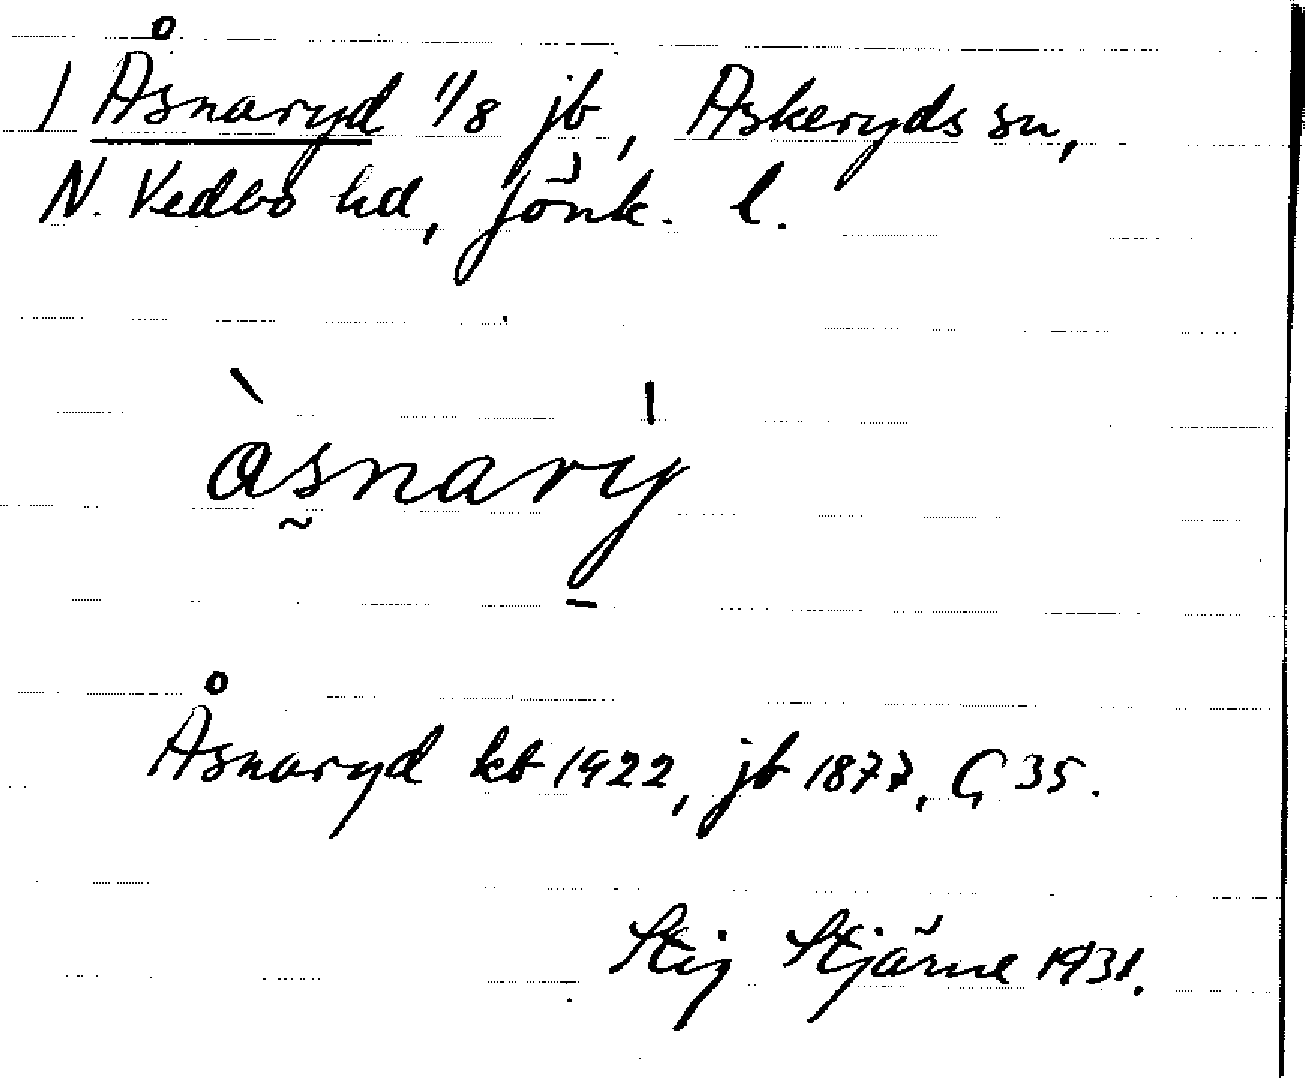 1 Åsnaryd 1/8 jb, Askeryds sn,
N. Vedbo hd, Jönk. l.
àsnarý
Åsnaryd kb 1922, jb 1877, G 35.
Stig Stjärne 1931.